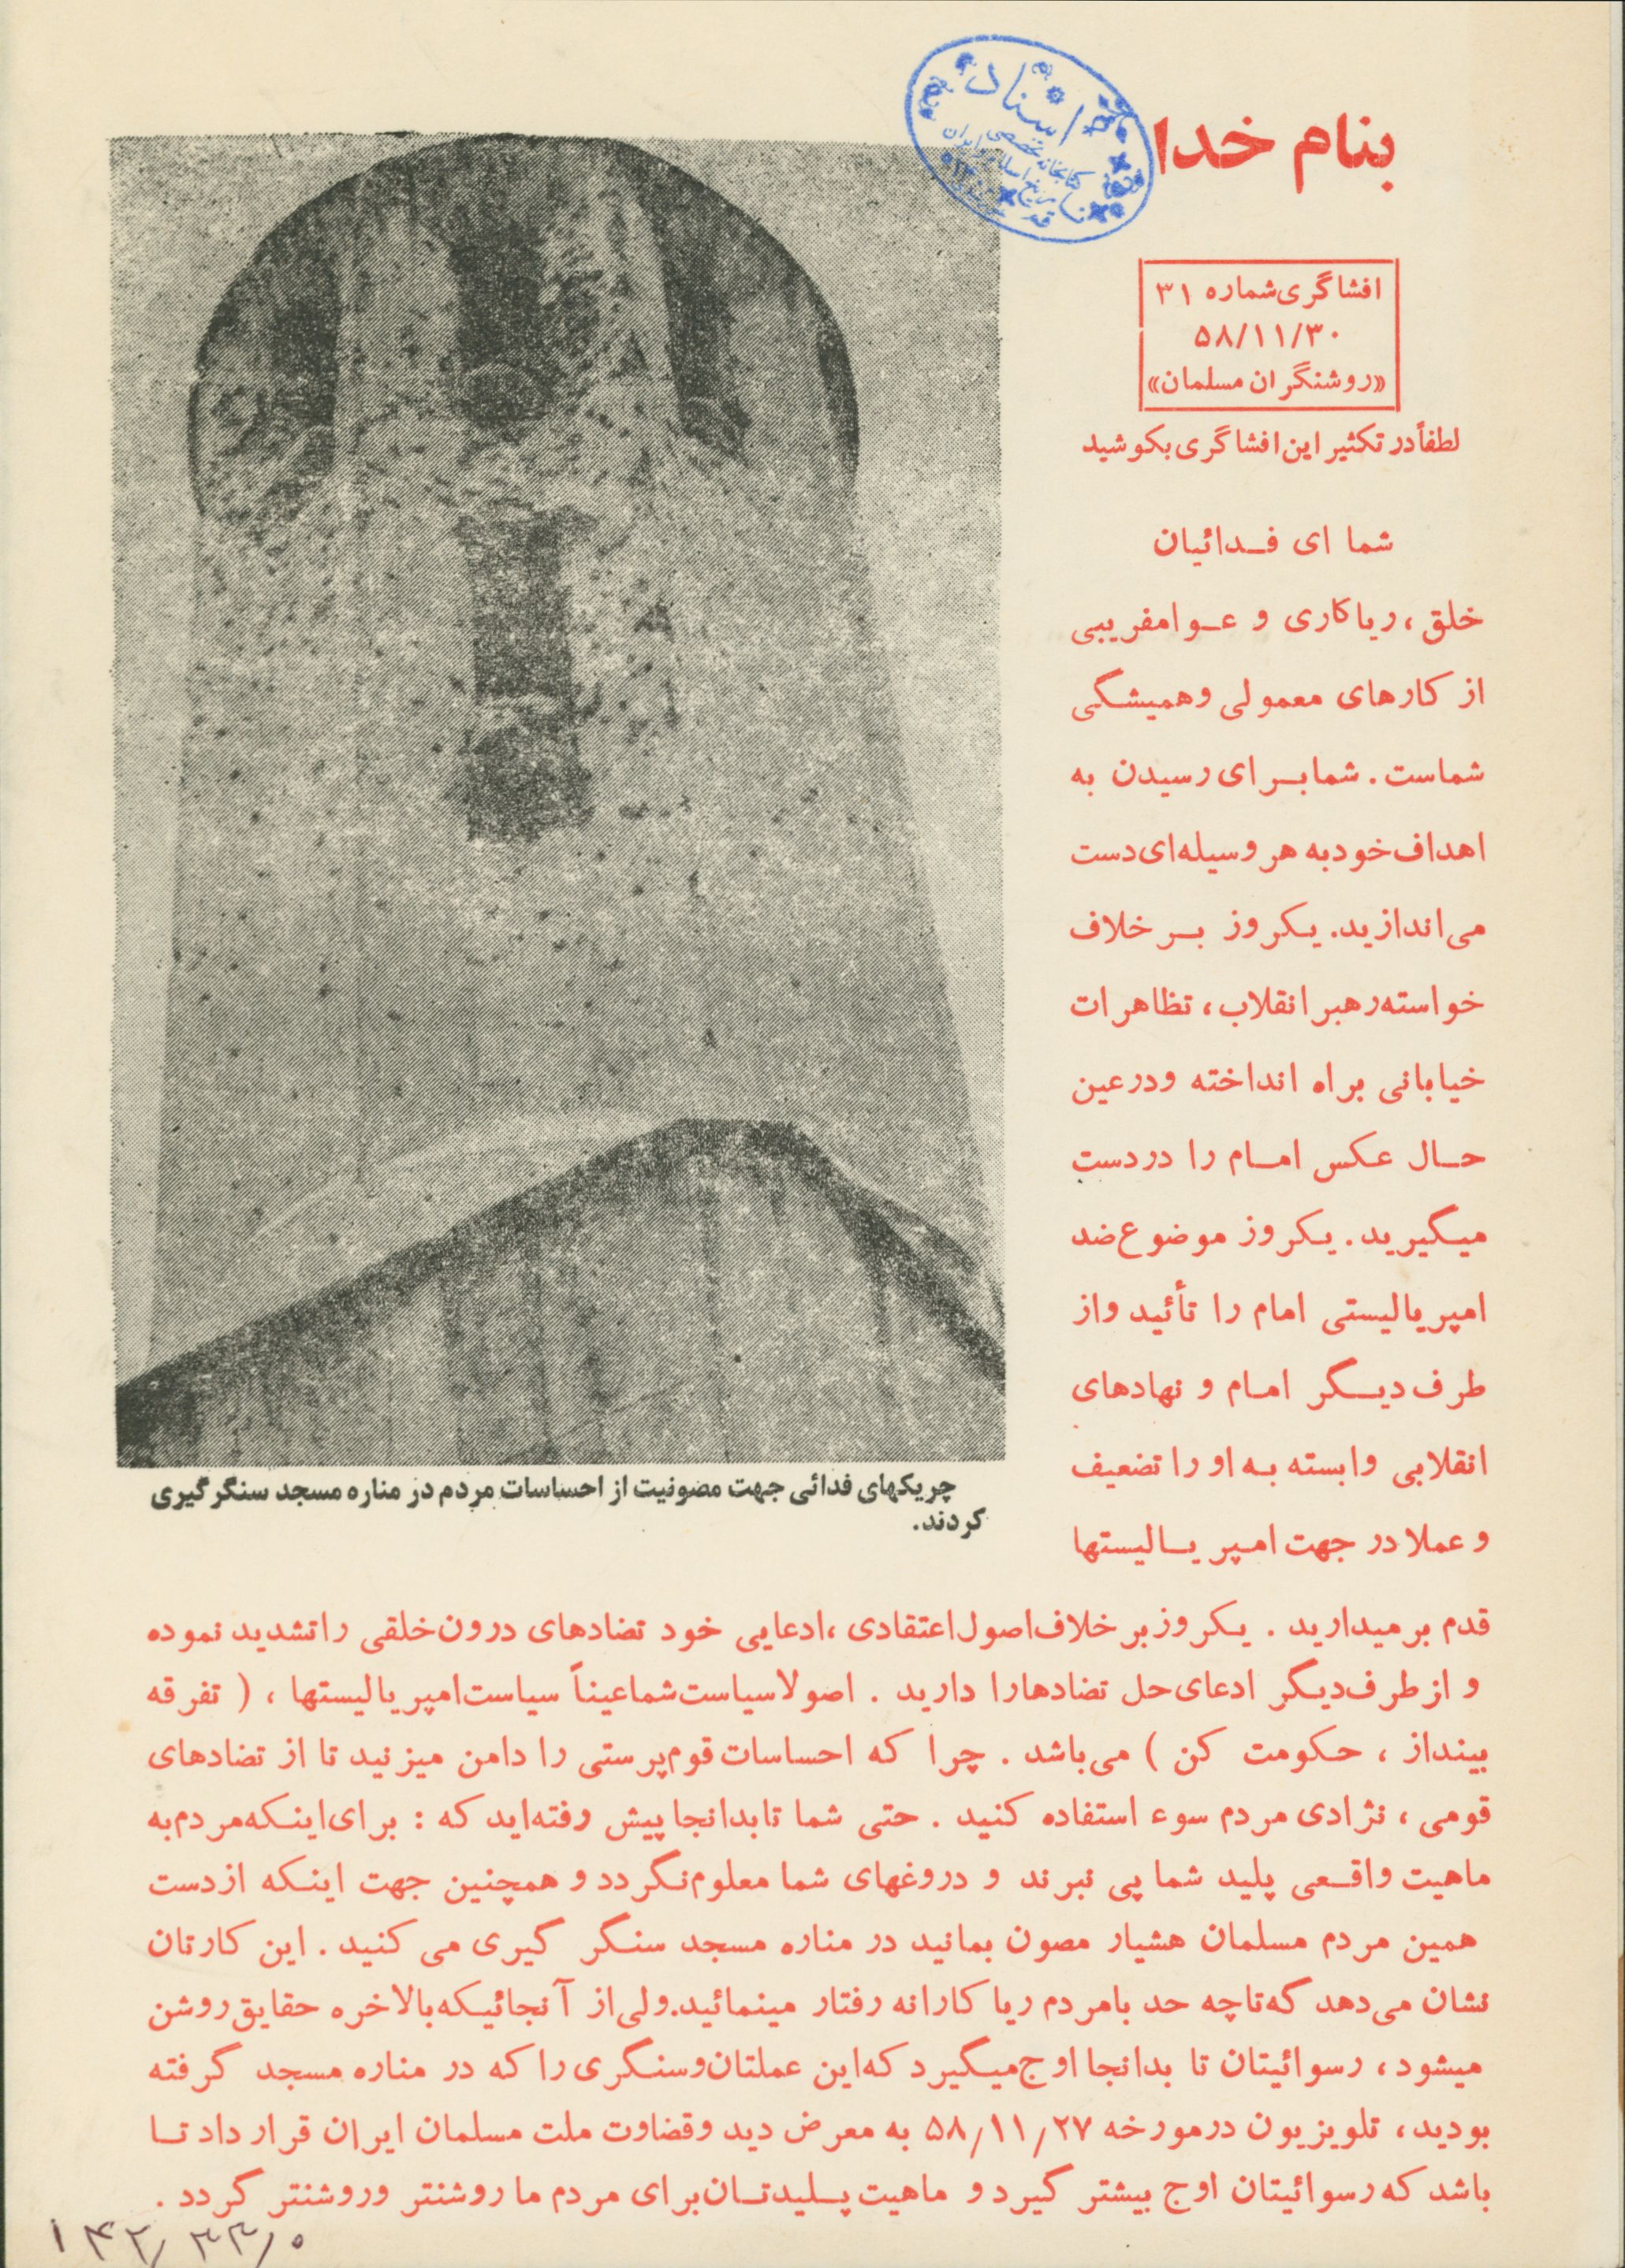 بنام خدا
اسناد
کتابخانه تخصصی
تاریخ اسلام و ایران
قم
افشاگری شماره ۳۱
۵۸/۱۱/۳۰
«روشنگران مسلمان»
لطفاً در تکثیر این افشاگری بکوشید
شما ای فـدائیان
خلق، ریاکاری و عـوامفریبی
از کارهای معمولی وهمیشگی
شماست. شما بـرای رسیدن به
اهداف خود به هر وسیله‌ای دست
می‌اندازید. یکروز بـر خلاف
خواسته رهبر انقلاب، تظاهرات
خیابانی براه انداخته ودرعین
حـال عکس امـام را دردست
میگیرید. یکروز موضوع ضد
امپریالیستی امام را تأئید واز
طرف دیـگر امـام و نهادهای
انقلابی وابسته بـه او را تضعیف
و عملا در جهت امپریـالیستها
چریکهای فدائی جهت مصونیت از احساسات مردم در مناره مسجد سنگر گیری
کردند.
قدم بر میدارید . یکروز بر خلاف اصول اعتقادی ،ادعایی خود تضادهای درون خلقی را تشدید نموده
و از طرف دیگر ادعای حل تضادها را دارید . اصولا سیاست شما عیناً سیاست امپریالیستها ، ( تفرقه
بینداز ، حکومت کن ) می‌باشد . چرا که احساسات قوم‌پرستی را دامن میزنید تا از تضادهای
قومی ، نژادی مردم سوء استفاده کنید . حتی شما تا بدانجا پیش رفته‌اید که : برای اینـکه مردم به
ماهیت واقـعی پلید شما پی نبرند و دروغهای شما معلوم نگردد و همچنین جهت اینـکه از دست
همین مردم مسلمان هشیار مصون بمانید در مناره مسجد سنـگر گیری می کنید . این کارتان
نشان می‌دهد که تا چه حد با مردم ریا کارانه رفتار مینمائید.ولی از آنجائیـکه بالاخره حقایق روشن
میشود ، رسوائیتان تا بدانجا اوج میـگیرد که این عملتان و سنـگری را که در مناره مسجد گرفته
بودید، تلویزیون در مورخه ۵۸/۱۱/۲۷ به معرض دید وقضاوت ملت مسلمان ایران قرار داد تـا
باشد که رسوائیتان اوج بیشتر گیرد و ماهیت پـلیدتـان برای مردم ما روشنتر وروشنتر گردد .